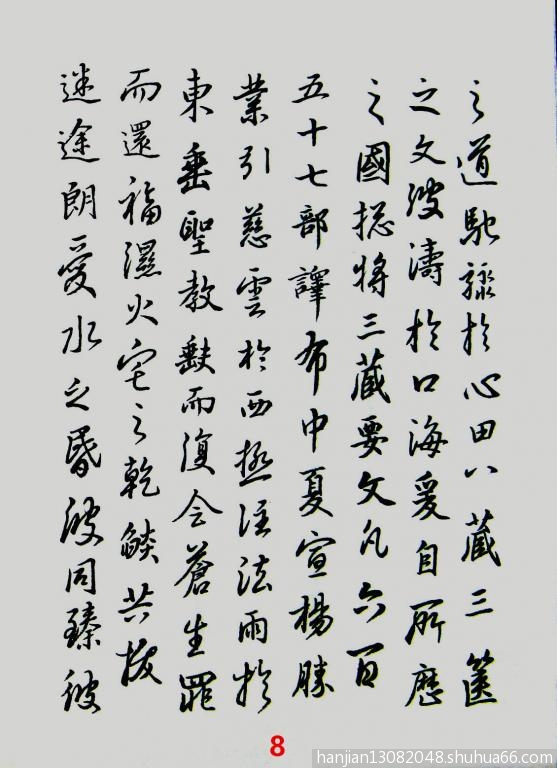 之道馳驟於心田八藏三篋
之文波濤於口海爰自所歷
之國摠將三藏要文凡六百
五十七部譯布中夏宣揚勝
業引慈雲於西極注法雨於
東垂聖教缺而復全蒼生罪
而還福濕火宅之乾焰共拔
迷途朗愛水之昏波同臻彼
8
hanjian13082048.shuhua66.com